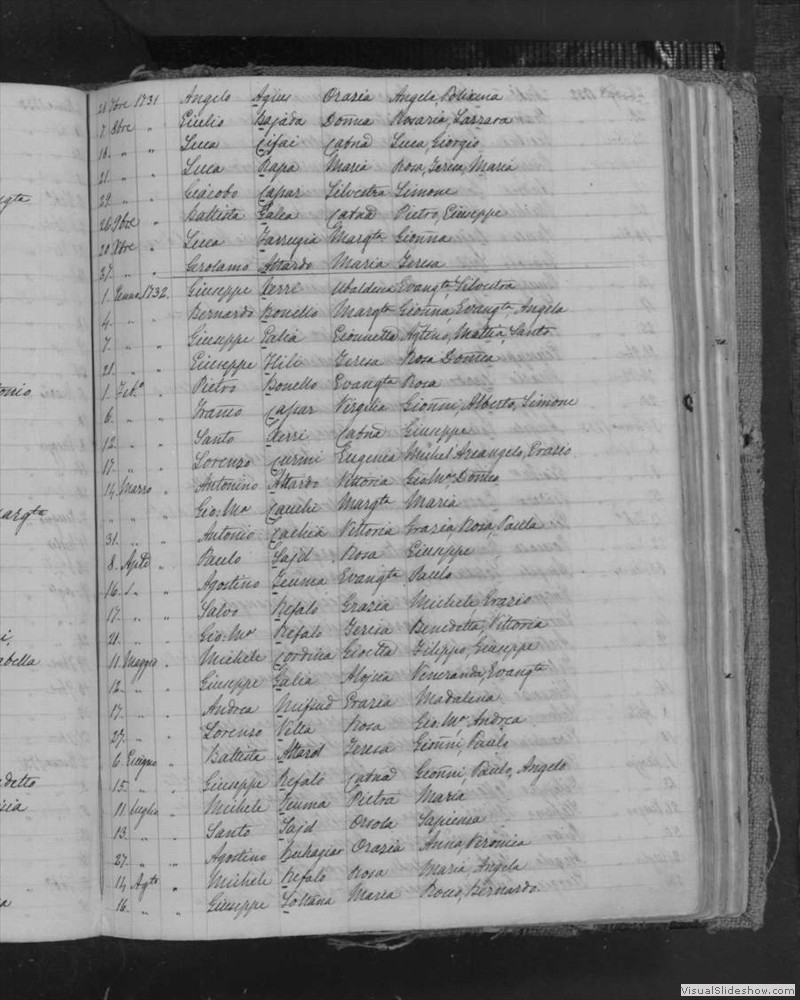 21 7bre 1731 Angelo Agius Orazia Angela, Polisena
7 8bre " Giulio Bajada Donna Rosaria, Lazzara
18. " " Luca Cifai Catnā Luca, Giorgio
21. " " Luca Rapa Maria Rosa, Teresa, Maria
29. " " Giacobo Capar Silvestra Simone
26 9bre " Battista Galea Catnā Pietro, Giuseppe
20 Xbre " Luca Farrugia Margta Gionna
37. " " Gerolamo Attardo Maria Teresa
1. Genna 1732. Giuseppe Xerri Ubaldesca Evangta, Silvestra
4. " " Bernardo Bonello Margta Gionna Evangta Angela
7. " " Giuseppe Galia Gionnella Agtino, Mattia, Santo
21. " " Giuseppe Hili Teresa Rosa Domca
1. Feb.o " Pietro Bonello Evangta Rosa
6. " " Franco Capar Virgilia Gionni, Alberto, Simone
12. " " Santo Xerri Catnā Giuseppe
17. " " Lorenzo Curmi Eugenia Michel' Arcangelo, Grazio
14 Marzo " Antonino Attardo Vittoria Gio Ma Domco
" " " Gio: Ma Cauchi Margta Maria
31. " " Antonio Cachia Vittoria Grazia, Rosa, Paula
8. Aple " Paulo Sajd Rosa Giuseppe
16. " Agostino Zeuma Evangta Paulo
17. " " Salvo Refalo Grazia Michele Grazio
21. " " Gio: Ma Refalo Teresa Benedetta, Vittoria
11 Maggio " Michele Cordina Gioetta Filippo, Giuseppe
12. " " Giuseppe Galia Aloisia Veneranda, Evangta
17. " " Andrea Mifsud Grazia Madalena
27. " " Lorenzo Vella Rosa Gio: Ma Andrea
6 Giugno " Battista Attard Teresa Gionni, Paulo
15. " " Giuseppe Refalo Catnā Gionni Paulo, Angelo
11 Luglio " Michele Zeuma Pietra Maria
13. " " Santo Sajd Orsola Sapienza
27. " " Agostino Buhagiar Orazia Anna Veronica
14 Agto " Michele Refalo Rosa Maria, Angela
16. " " Giuseppe Soltana Maria Rocco, Bernardo.
VisualSlideshow.com